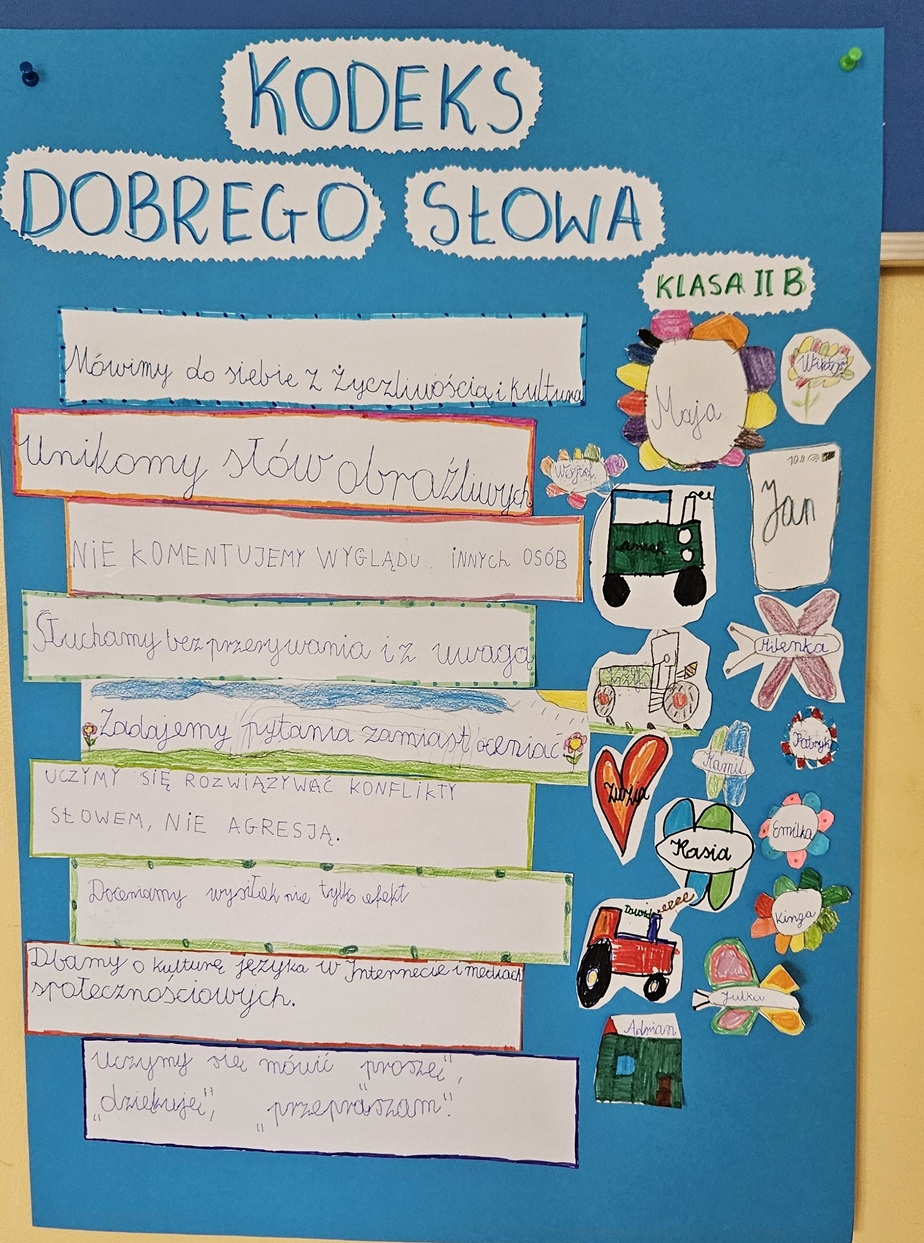 KODEKS
DOBREGO SŁOWA
KLASA II B
Mówimy do siebie z Życzliwością i kulturą
Unikamy słów obraźliwych
NIE KOMENTUJEMY WYGLĄDU INNYCH OSÓB
Słuchamy bez przerywania i z uwagą
Zadajemy pytania zamiast oceniać
UCZYMY SIĘ ROZWIĄZYWAĆ KONFLIKTY
SŁOWEM, NIE AGRESJĄ.
Doceniamy wysiłek nie tylko efekt
Dbamy o kulturę języka w Internecie i mediach
społecznościowych.
Uczymy się mówić "proszę",
"dziękuję", "przepraszam".
Maja
Jan
Milenka
Patryk
Kamil
Zuzia
Emilka
Kasia
Kinga
Dawid
Julka
Adrian